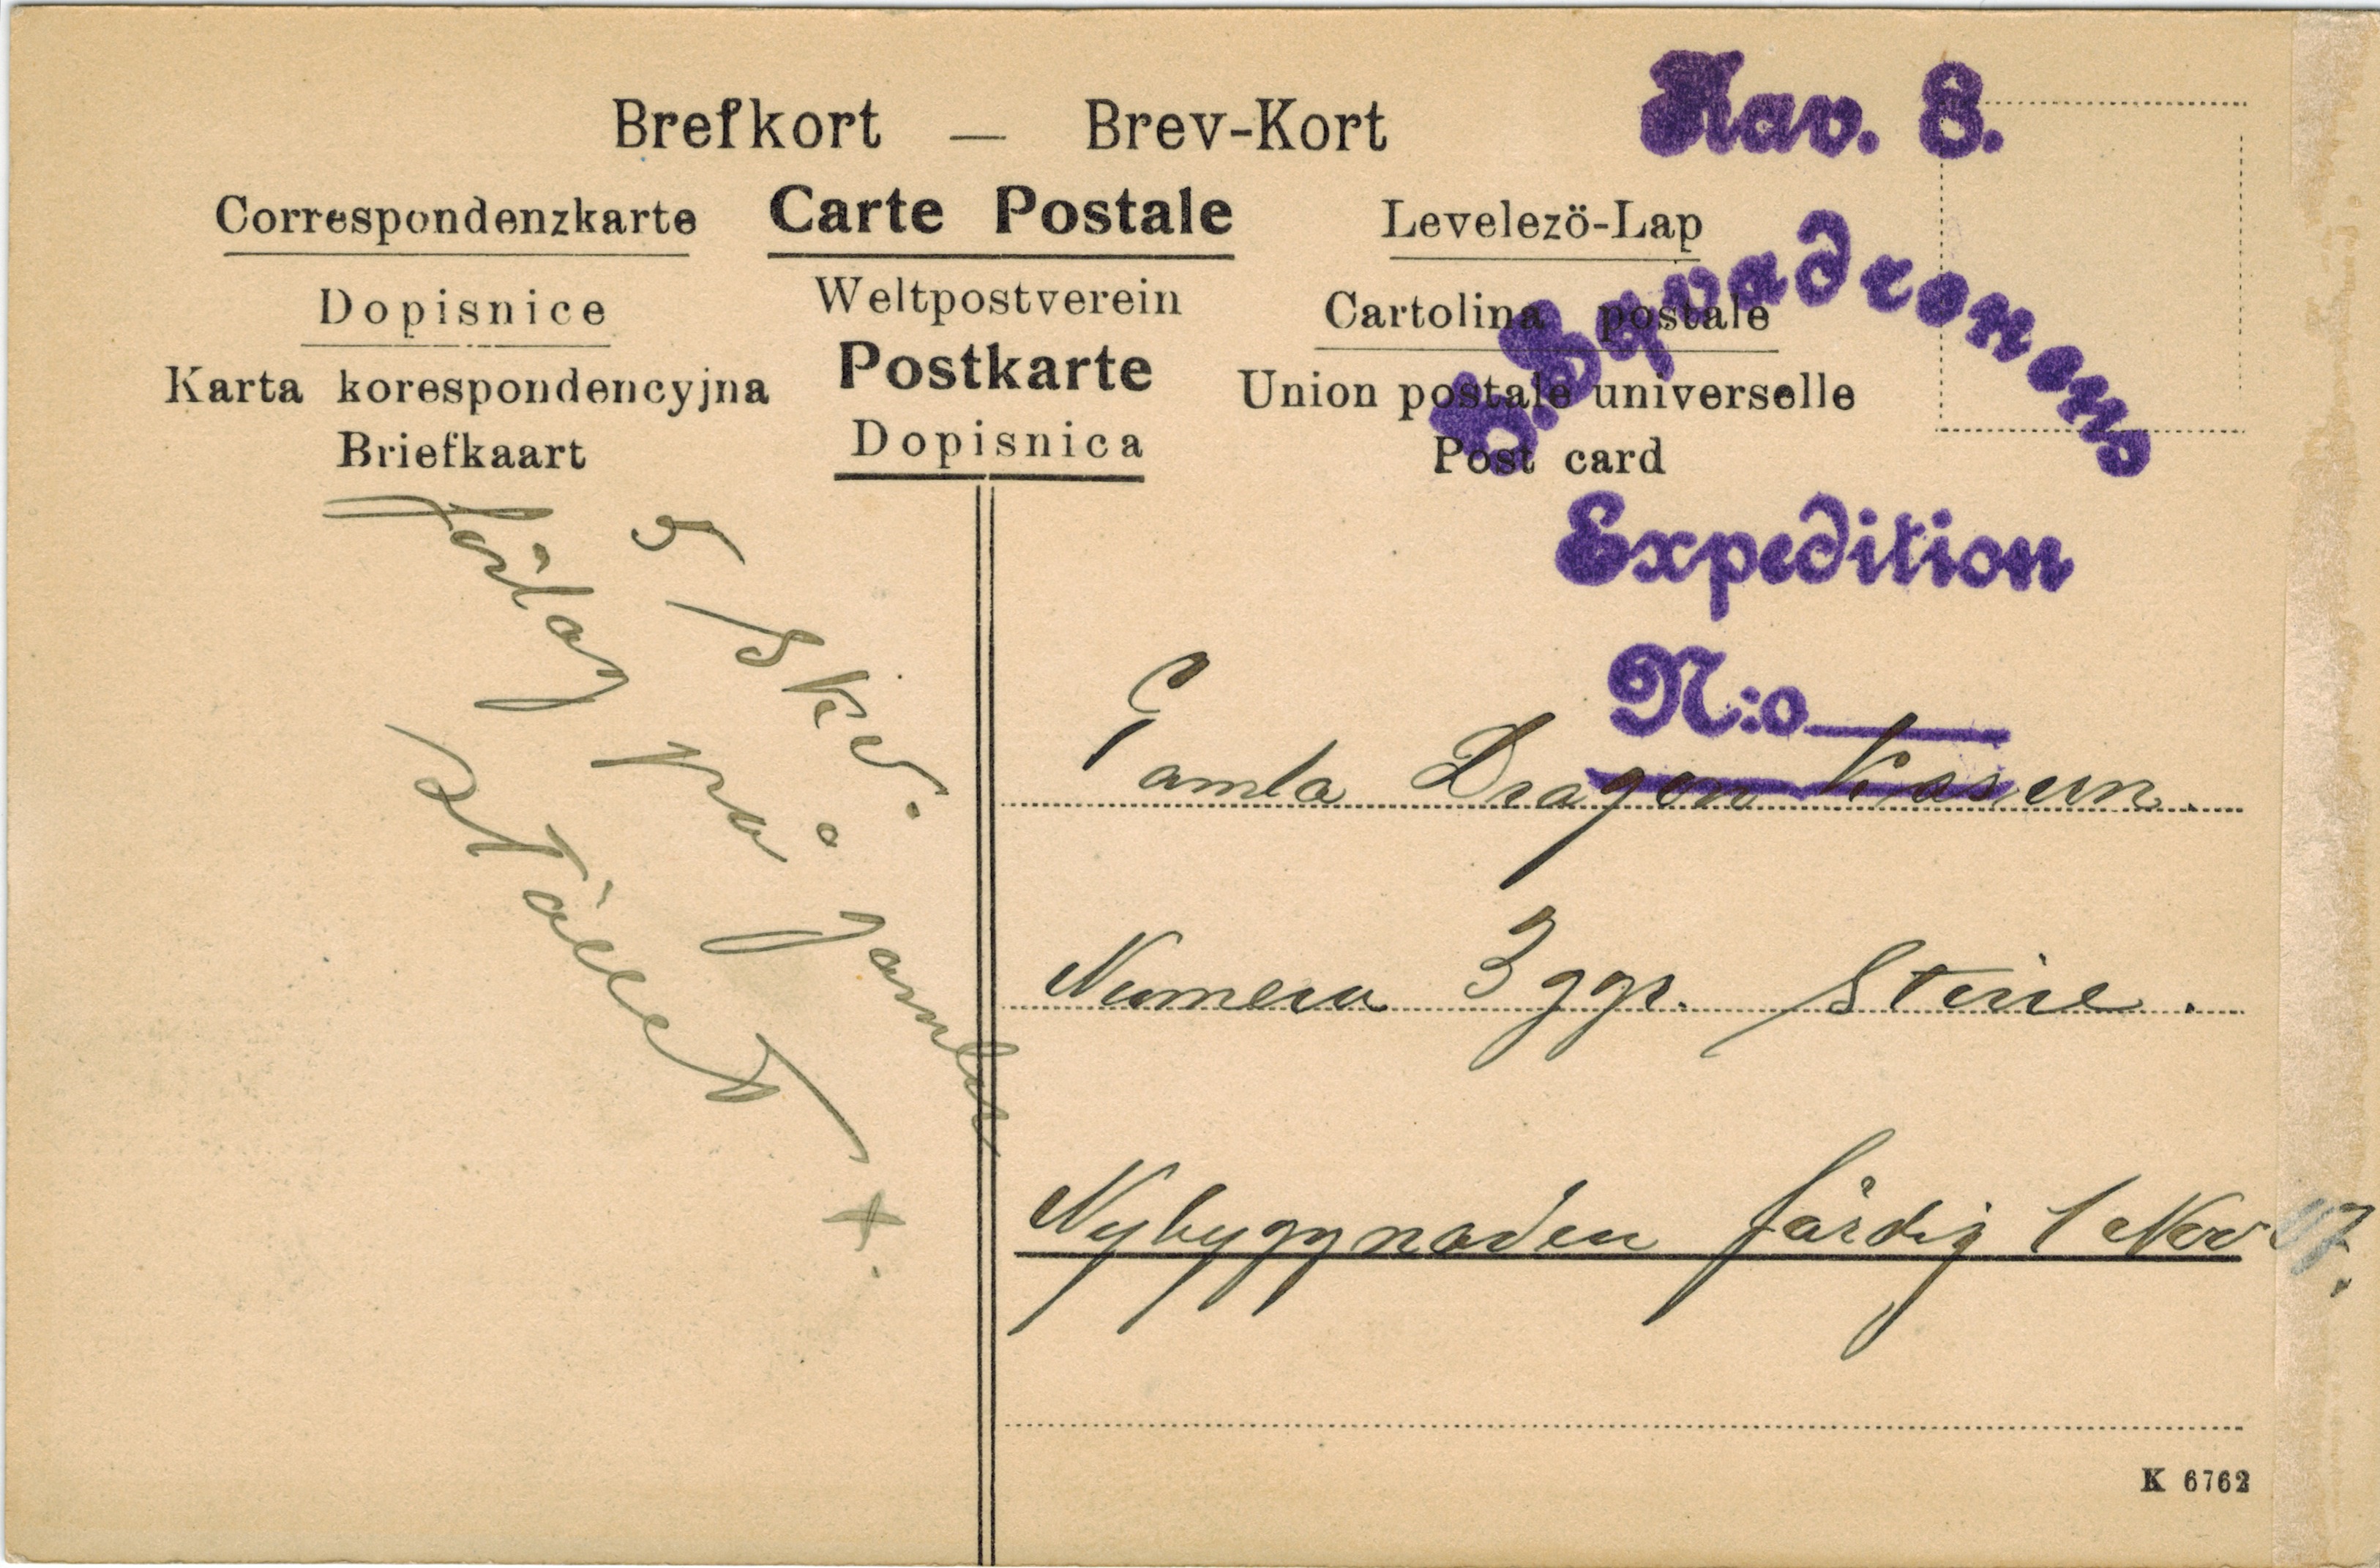 Brefkort — Brev-Kort
Correspondenzkarte
Carte Postale
Levelezö-Lap
Dopisnice
Weltpostverein
Cartolina postale
Karta korespondencyjna
Postkarte
Union postale universelle
Briefkaart
Dopisnica
Post card
Kav. 8.
Sqvadronens
Expedition
N:o
5 Skv.
förlag på gamla
Stallet
+
Gamla Dragon Kasern.
Numera 3 ggr. större.
Nybyggnaden färdig 1 Nov 07.
K 6762